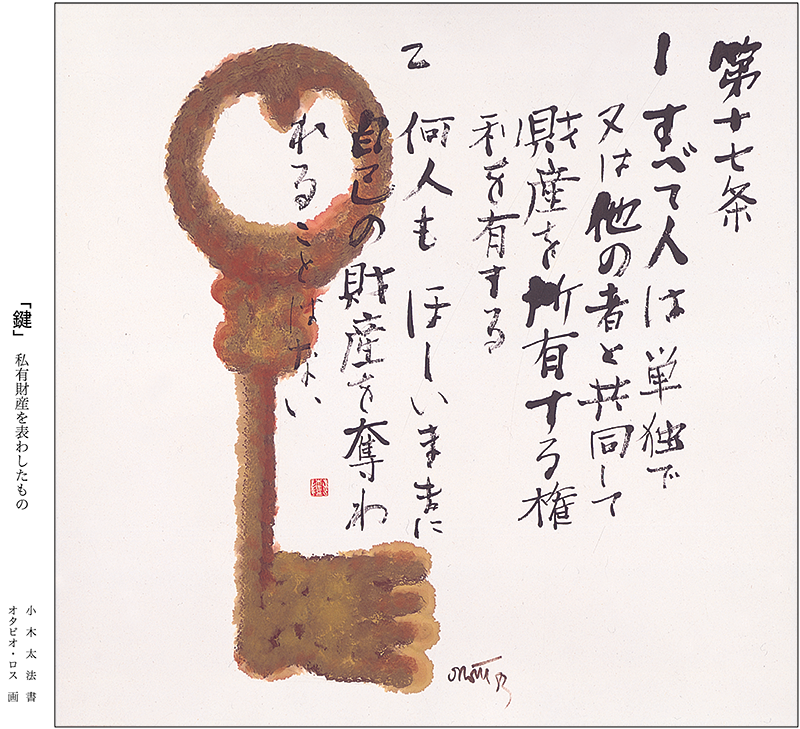 第十七条
1 すべて人は単独で
又は他の者と共同して
財産を所有する権
利を有する
2 何人もほしいままに
自己の財産を奪わ
れることはない
「鍵」 私有財産を表わしたもの
小木太法 書
オタビオ・ロス 画